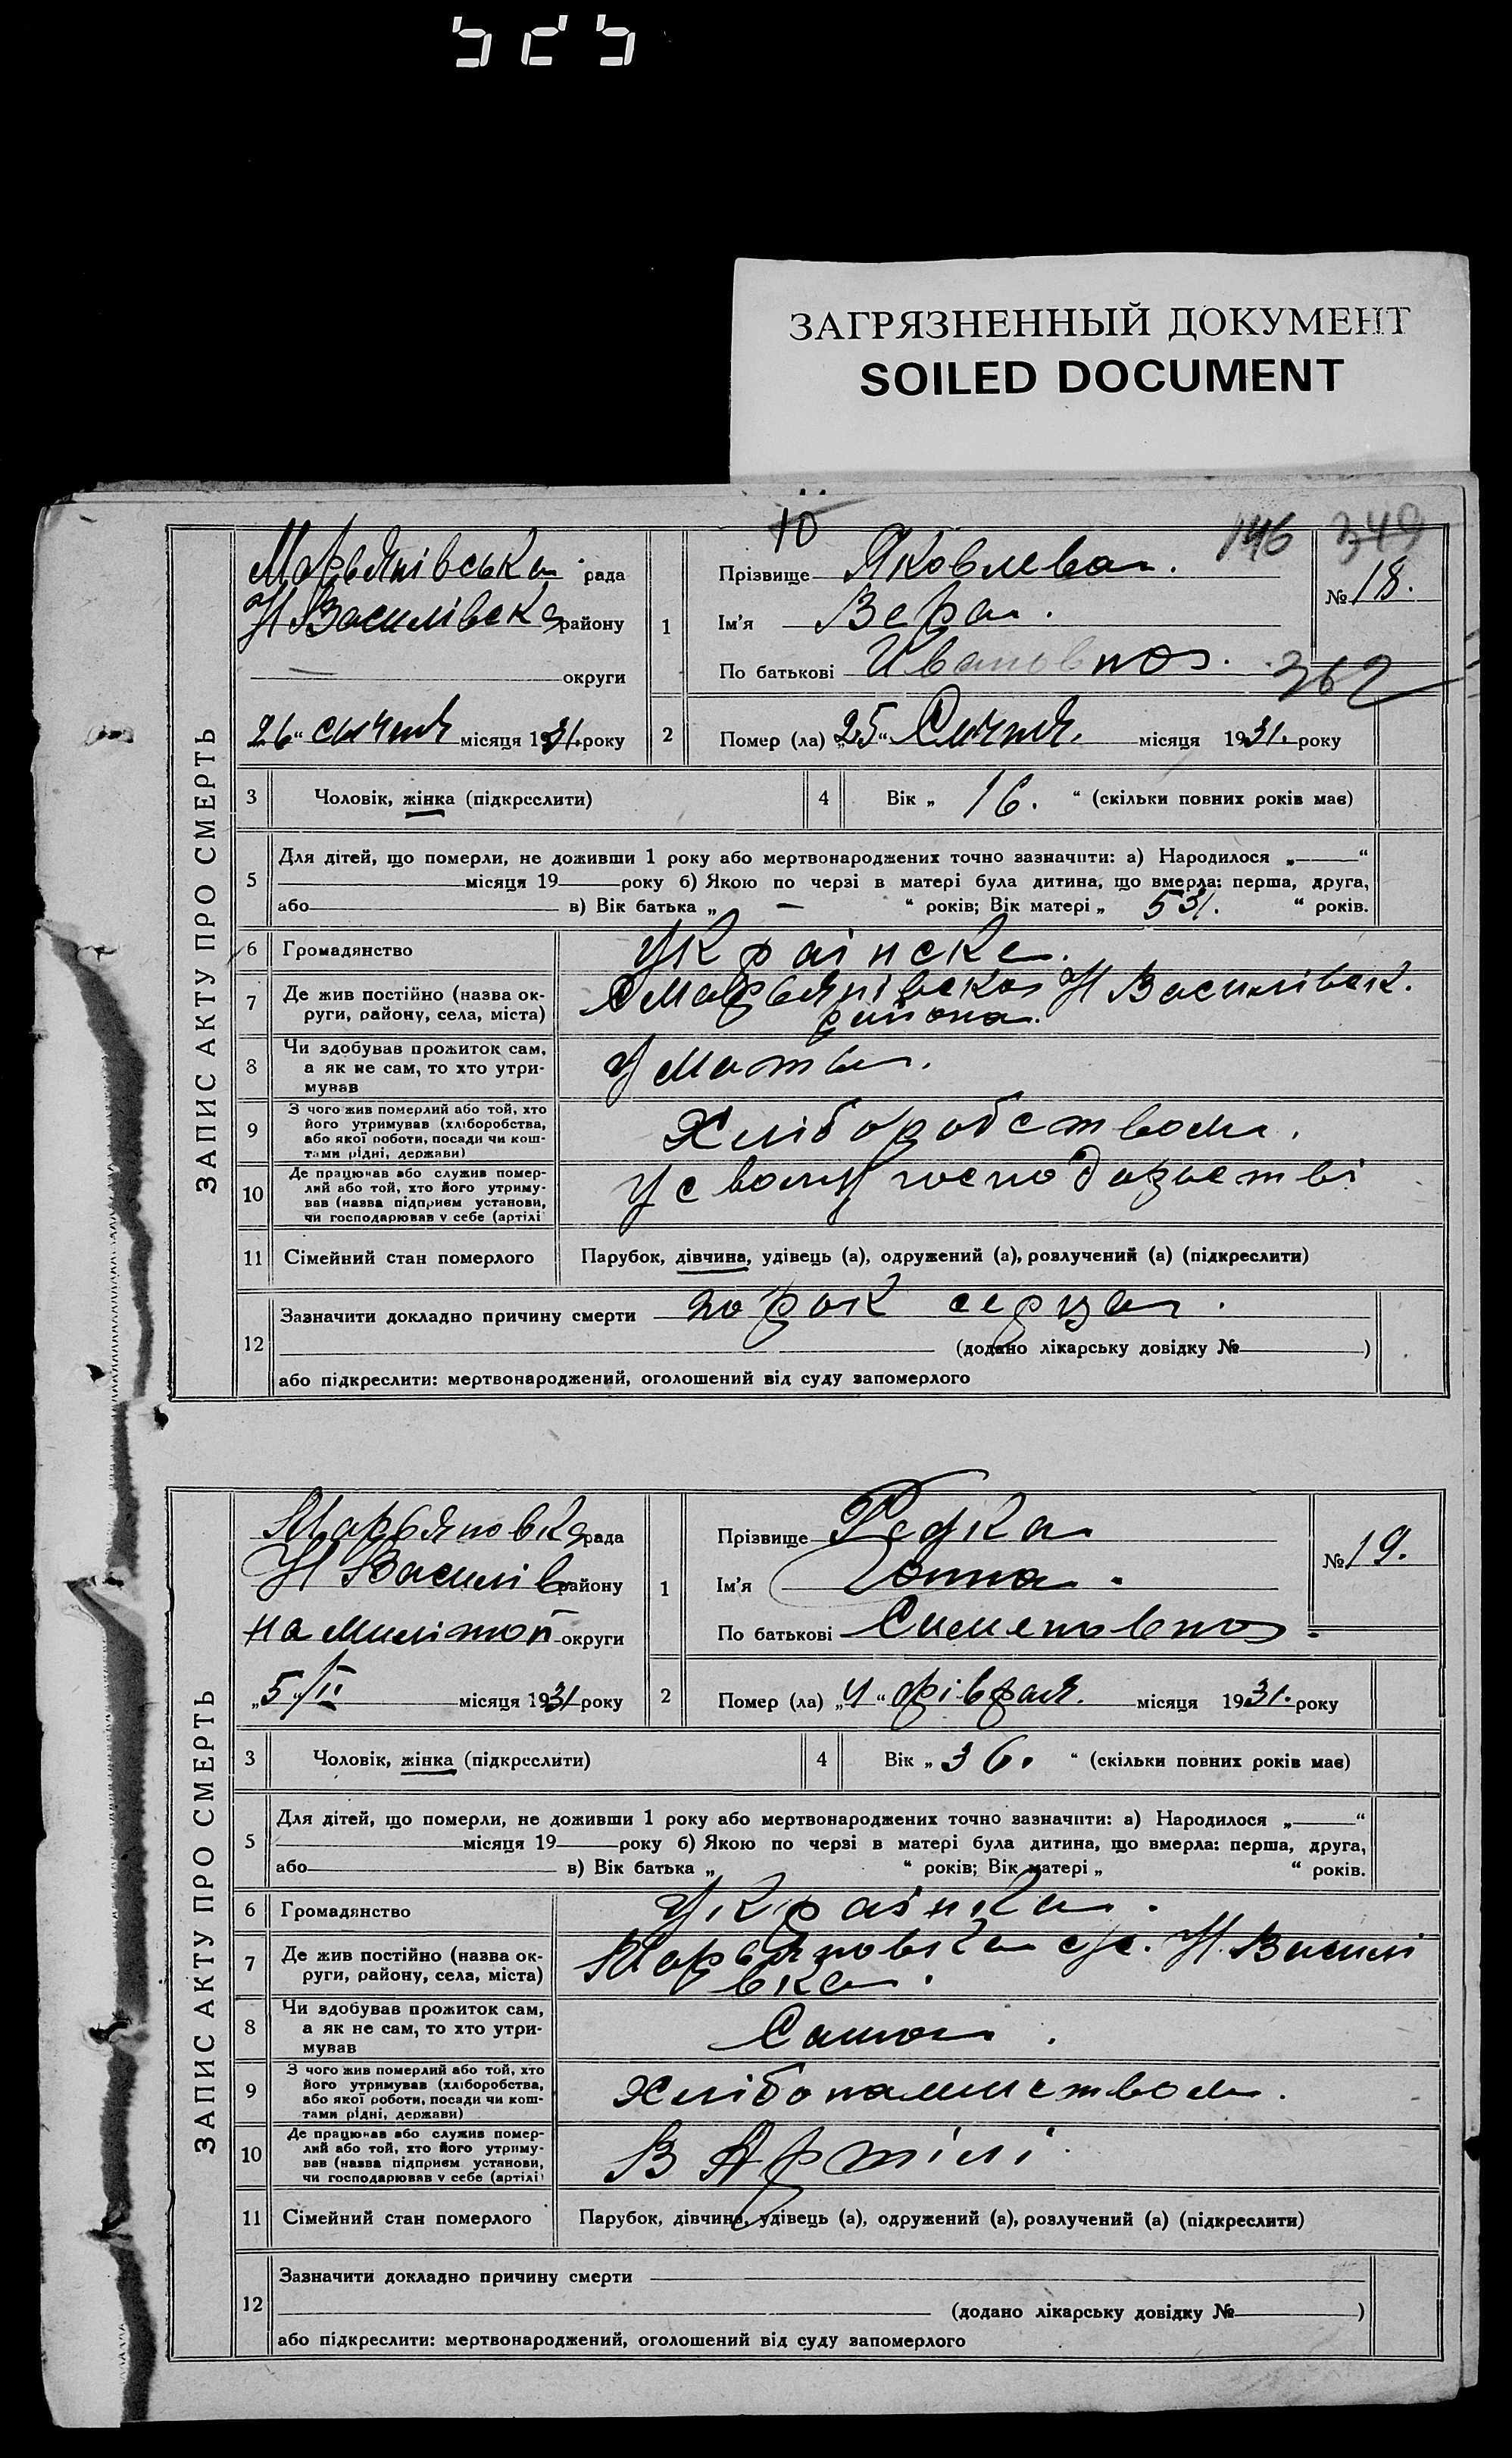 525
ЗАГРЯЗНЕННЫЙ ДОКУМЕНТ
SOILED DOCUMENT
ЗАПИС АКТУ ПРО СМЕРТЬ
10
146 349
Марьянівська рада
Н Василівска району
округи
„26“ січня місяця 1931. року
1
Прізвище Яковлева.
Ім'я Вера.
По батькові Ивановна.
№ 18.
362
2 Помер (ла) „25“ Січня. місяця 1931. року
3 Чоловік, жінка (підкреслити)
4 Вік „ 16. “ (скільки повних років має)
5 Для дітей, що померли, не доживши 1 року або мертвонароджених точно зазначити: а) Народилося „ “
місяця 19 року б) Якою по черзі в матері була дитина, що вмерла: перша, друга,
або в) Вік батька „ — “ років; Вік матері „ “ років.
6 Громадянство Украінске.
7 Де жив постійно (назва округи, району, села, міста)
Марьянівска Н Василівск.
района.
8 Чи здобував прожиток сам,
а як не сам, то хто утри-
мував
У мати.
9 З чого жив померлий або той, хто
його утримував (хліборобства,
або якої роботи, посади чи кош-
тами рідні, держави)
Хліборобством.
10 Де працював або служив помер-
лий або той, хто його утриму-
вав (назва підприєм установи,
чи господарював у себе (артілі
У свому господарстві
11 Сімейний стан померлого Парубок, дівчина, удівець (а), одружений (а), розлучений (а) (підкреслити)
12 Зазначити докладно причину смерти порок серца.
(додано лікарську довідку № )
або підкреслити: мертвонароджений, оголошений від суду запомерлого
ЗАПИС АКТУ ПРО СМЕРТЬ
Марьяновка рада
Н Василів району
на Мелітоп округи
„5/II місяця 1931 року
1
Прізвище Редка
Ім'я Анна.
По батькові Сименовна.
№ 19.
2 Помер (ла) „4“ фівраля. місяця 1931. року
3 Чоловік, жінка (підкреслити)
4 Вік „ 36. “ (скільки повних років має)
5 Для дітей, що померли, не доживши 1 року або мертвонароджених точно зазначити: а) Народилося „ “
місяця 19 року б) Якою по черзі в матері була дитина, що вмерла: перша, друга,
або в) Вік батька „ “ років; Вік матері „ “ років.
6 Громадянство Украінка.
7 Де жив постійно (назва ок-
руги, району, села, міста)
Марьяновка с/с. Н. Васили
вка.
8 Чи здобував прожиток сам,
а як не сам, то хто утри-
мував
Сама.
9 З чого жив померлий або той, хто
його утримував (хліборобства,
або якої роботи, посади чи кош-
тами рідні, держави)
10 Де працював або служив помер-
лий або той, хто його утриму-
вав (назва підприєм установи,
чи господарював у себе (артілі)
В Артілі
11 Сімейний стан померлого Парубок, дівчина, удівець (а), одружений (а), розлучений (а) (підкреслити)
12 Зазначити докладно причину смерти
(додано лікарську довідку № )
або підкреслити: мертвонароджений, оголошений від суду запомерлого